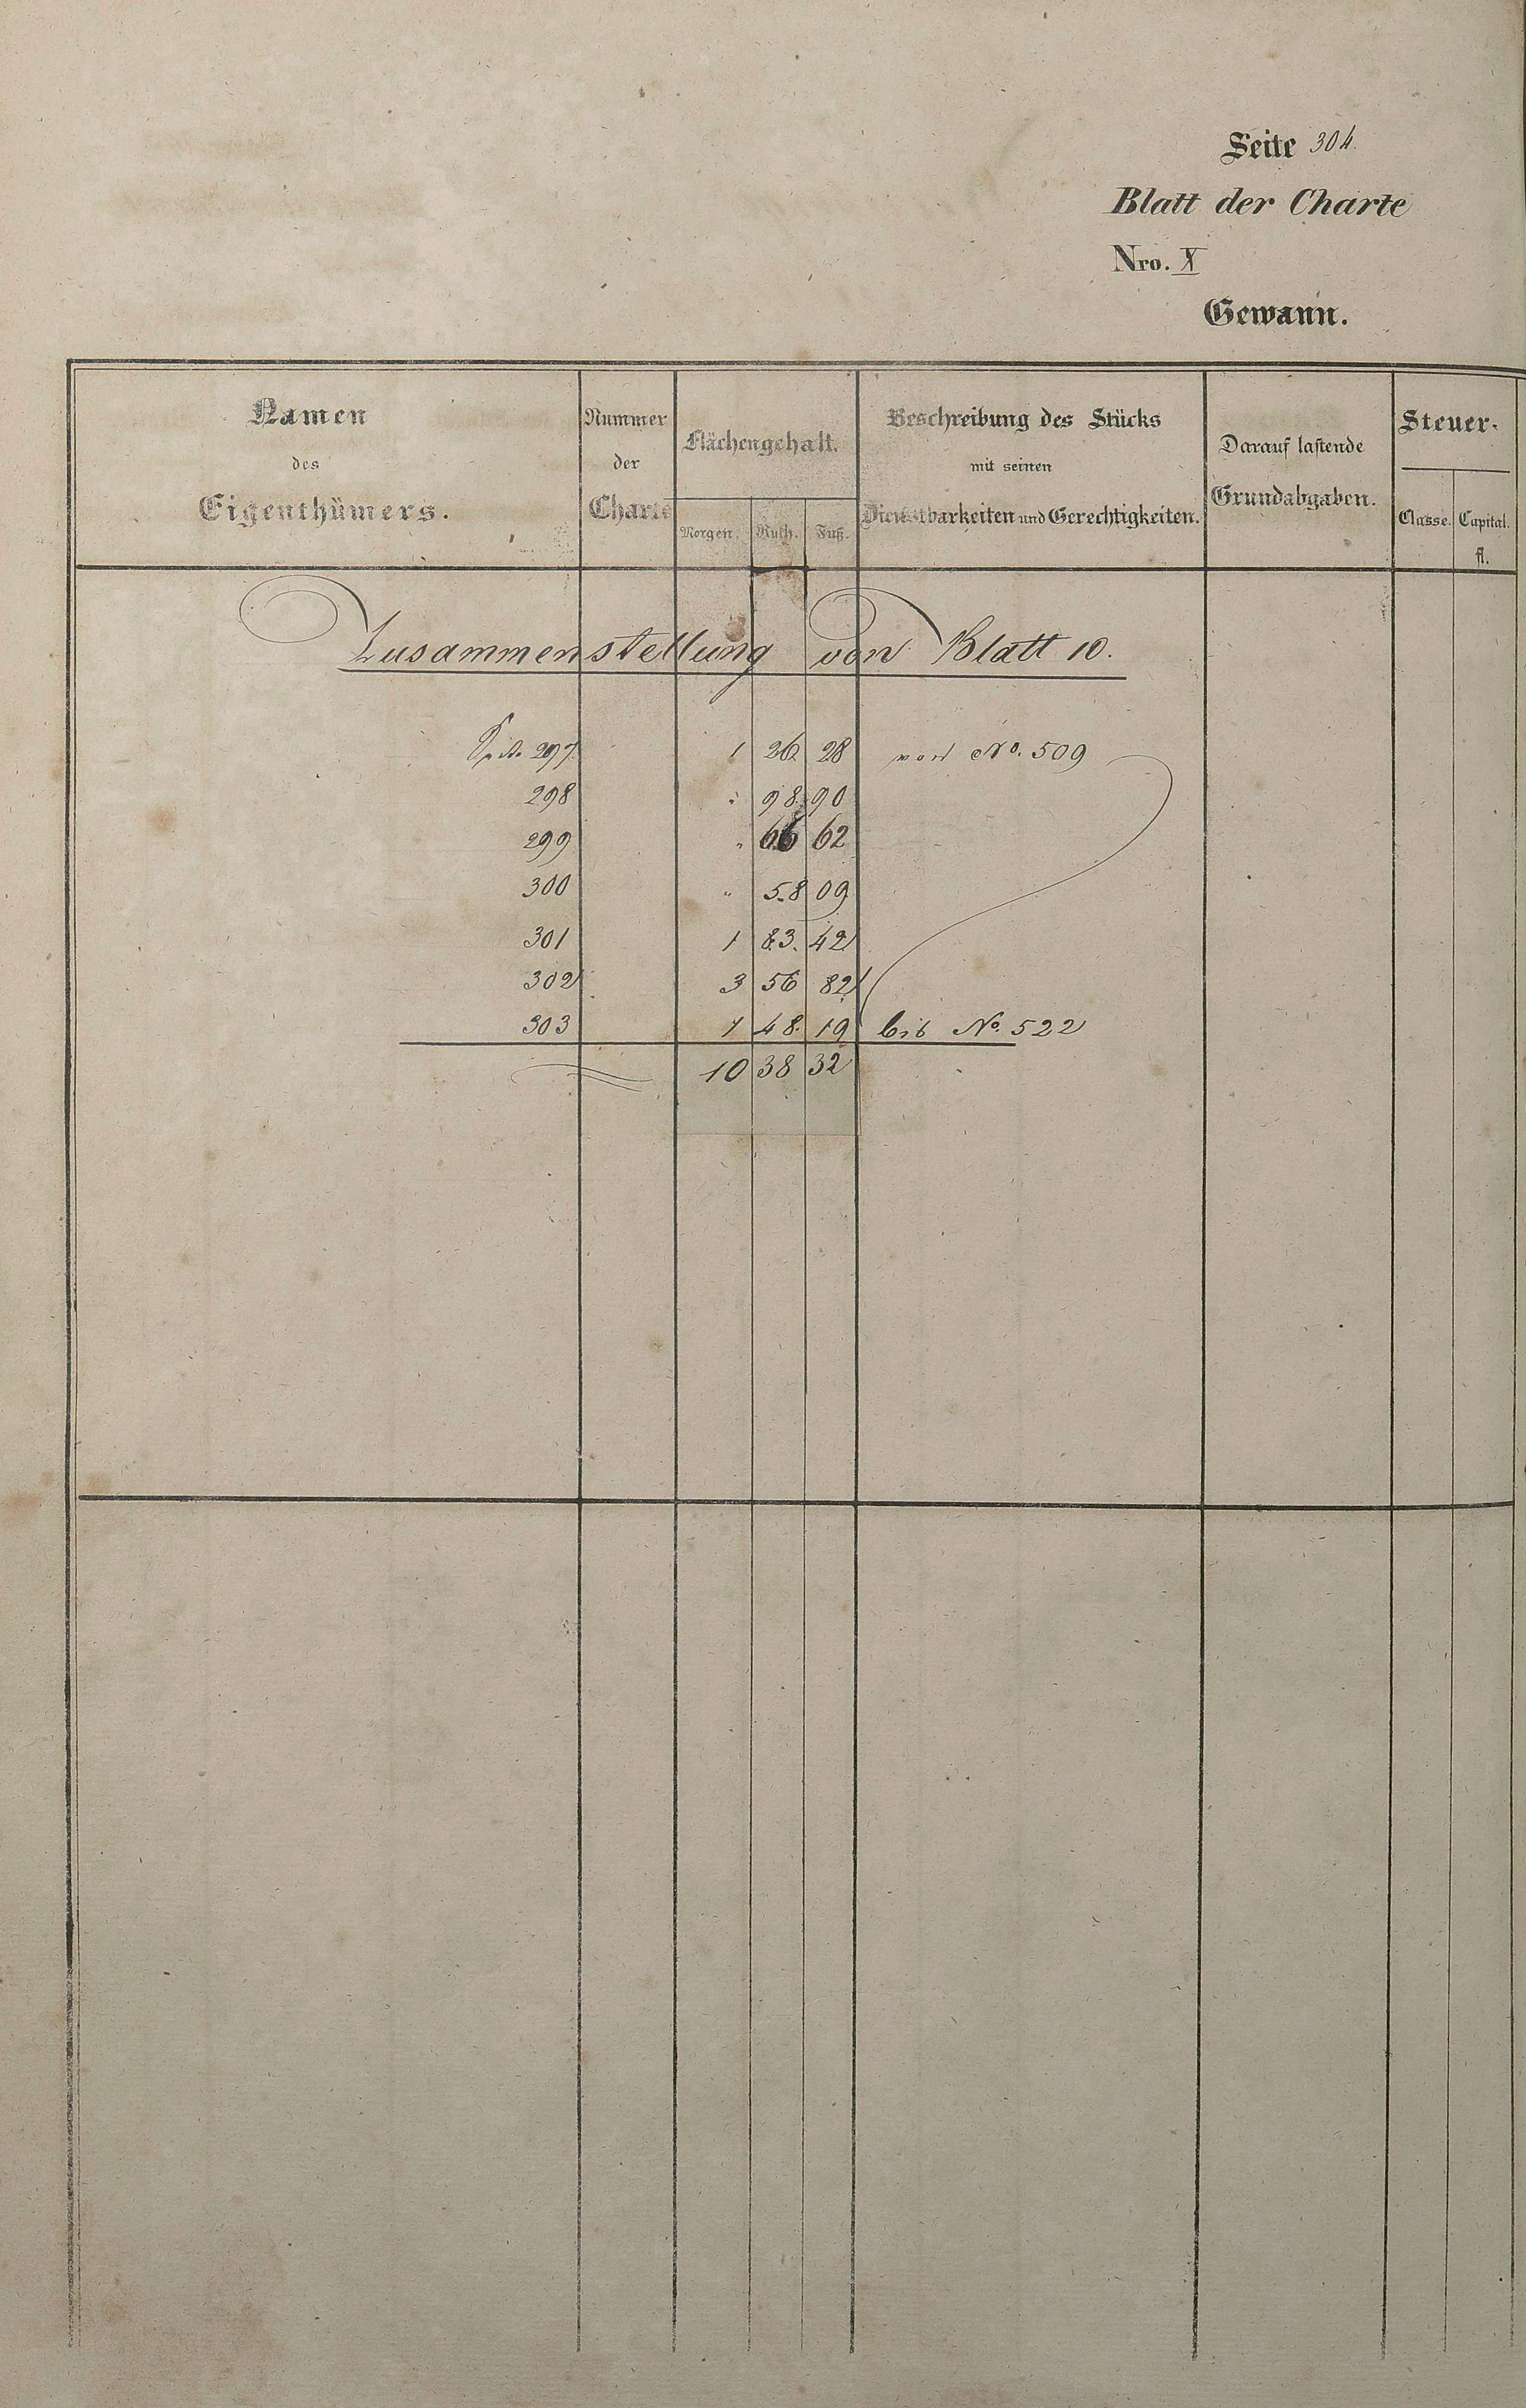 Seite 304.
Blatt der Charte
Nro. X
Gewann.
Namen
des
Eigenthümers.
Nummer
der
Charte
Flächengehalt.
Morgen. Ruth. Fuß.
Beschreibung des Stücks
mit seinen
Dienstbarkeiten und Gerechtigkeiten.
Darauf lastende
Grundabgaben.
Steuer-
Classe. Capital.
fl.
Zusammenstellung von Blatt 10.
Seite 297. 1 26 28 von No. 509
298 " 98. 90
299 " 66 62
300 " 58 09
301 1 83. 42
302 3 56 82
303 1 48. 19 bis No. 522
10 38 32